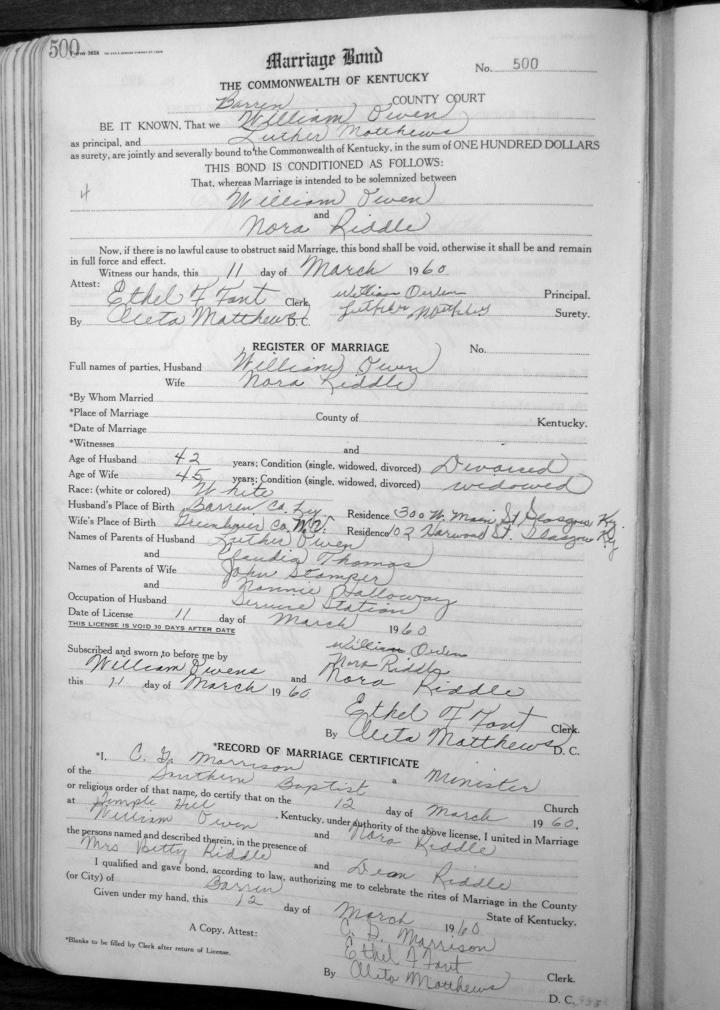 500
Marriage Bond
No. 500
THE COMMONWEALTH OF KENTUCKY
Barren COUNTY COURT
BE IT KNOWN, That we William Owen
as principal, and Luther Matthews
as surety, are jointly and severally bound to the Commonwealth of Kentucky, in the sum of ONE HUNDRED DOLLARS
THIS BOND IS CONDITIONED AS FOLLOWS:
That, whereas Marriage is intended to be solemnized between
4
William Owen
and
Nora Riddle
Now, if there is no lawful cause to obstruct said Marriage, this bond shall be void, otherwise it shall be and remain
in full force and effect.
Witness our hands, this 11 day of March 1960
Attest:
Ethel F Fant Clerk, William Owen Principal.
By Cleta Matthews D. C. Luther Matthews Surety.
REGISTER OF MARRIAGE No.
Full names of parties, Husband William Owen
Wife Nora Riddle
*By Whom Married
*Place of Marriage County of Kentucky.
*Date of Marriage
*Witnesses and
Age of Husband 42 years; Condition (single, widowed, divorced) Divorced
Age of Wife 45 years; Condition (single, widowed, divorced) widowed
Race: (white or colored) White
Husband's Place of Birth Barren Co. Ky Residence 300 W. Main St Glasgow Ky.
Wife's Place of Birth Co. Residence 102 Harwood St. Glasgow Ky
Names of Parents of Husband Luther Owen
and Claudia Thomas
Names of Parents of Wife John Stamper
and Nannie Holloway
Occupation of Husband Service Station
Date of License 11 day of March 1960
THIS LICENSE IS VOID 30 DAYS AFTER DATE
William Owen
Subscribed and sworn to before me by Nora Riddle
William Owens and Nora Riddle
this 11 day of March 1960
Ethel F Fant Clerk.
By Cleta Matthews D. C.
*RECORD OF MARRIAGE CERTIFICATE
*I, Morrison a Minister
of the Southern Baptist Church
or religious order of that name, do certify that on the 12 day of March 1960.
at Temple Hill, Kentucky, under authority of the above license, I united in Marriage
William Owen and Nora Riddle
the persons named and described therein, in the presence of
Mrs Betty Riddle and Dean Riddle
I qualified and gave bond, according to law, authorizing me to celebrate the rites of Marriage in the County
(or City) of Barren State of Kentucky.
Given under my hand, this 12 day of March 1960
Morrison
A Copy, Attest: Ethel F Fant Clerk.
*Blanks to be filled by Clerk after return of License.
By Cleta Matthews
D. C.